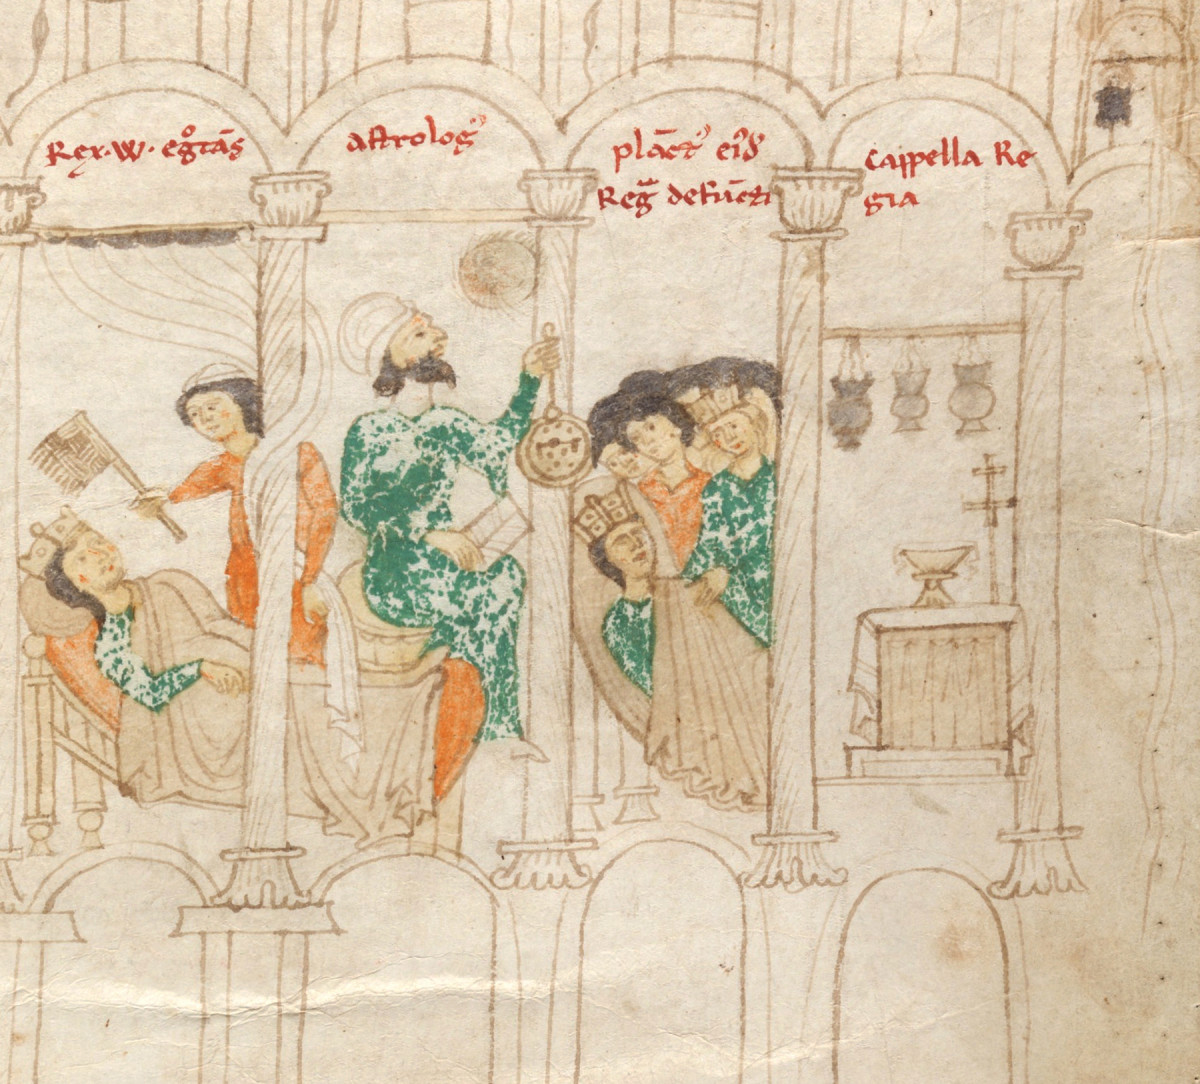 Rex·W· eg͛tās
Astrolog᾽
plāct᾽ ei᾽d᾽
Reg̅ defūcti
Cappella Re
gia